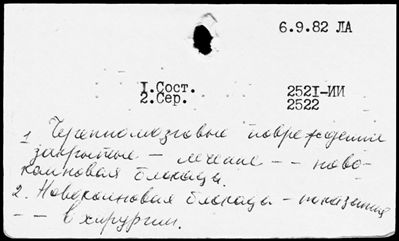 6.9.82 ЛА
1.Сост. 2521-ИИ
2.Сер. 2522
1 Черепномозговые повреждения
закрытые — лечение — — ново-
каиновая блокада.
2. Новокаиновая блокада — показания
— — в хирургии.